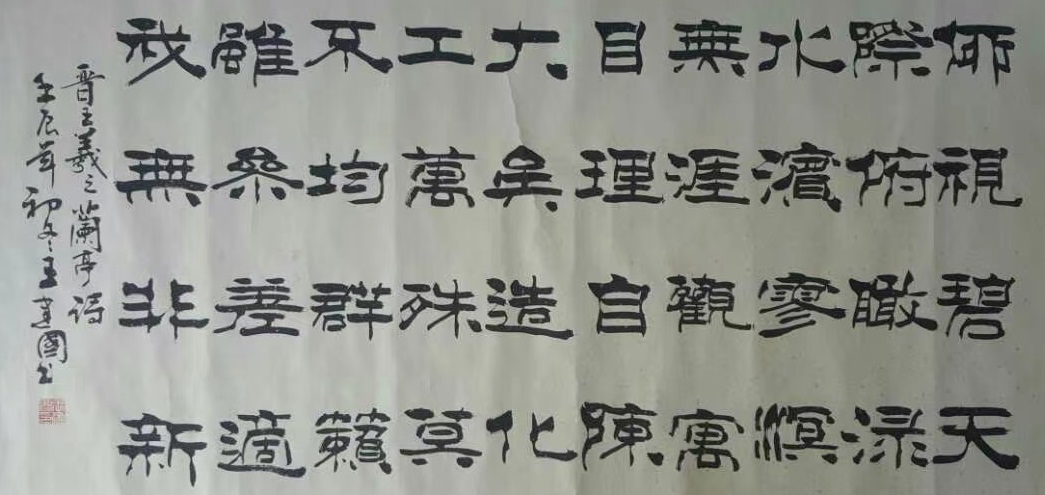 仰視碧天
際俯瞰淥
水濱寥溟
無涯觀寓
目理自陳
大矣造化
工萬殊莫
不均群籟
雖參差適
我無非新
晋王羲之蘭亭詩
壬辰年初冬王建國书